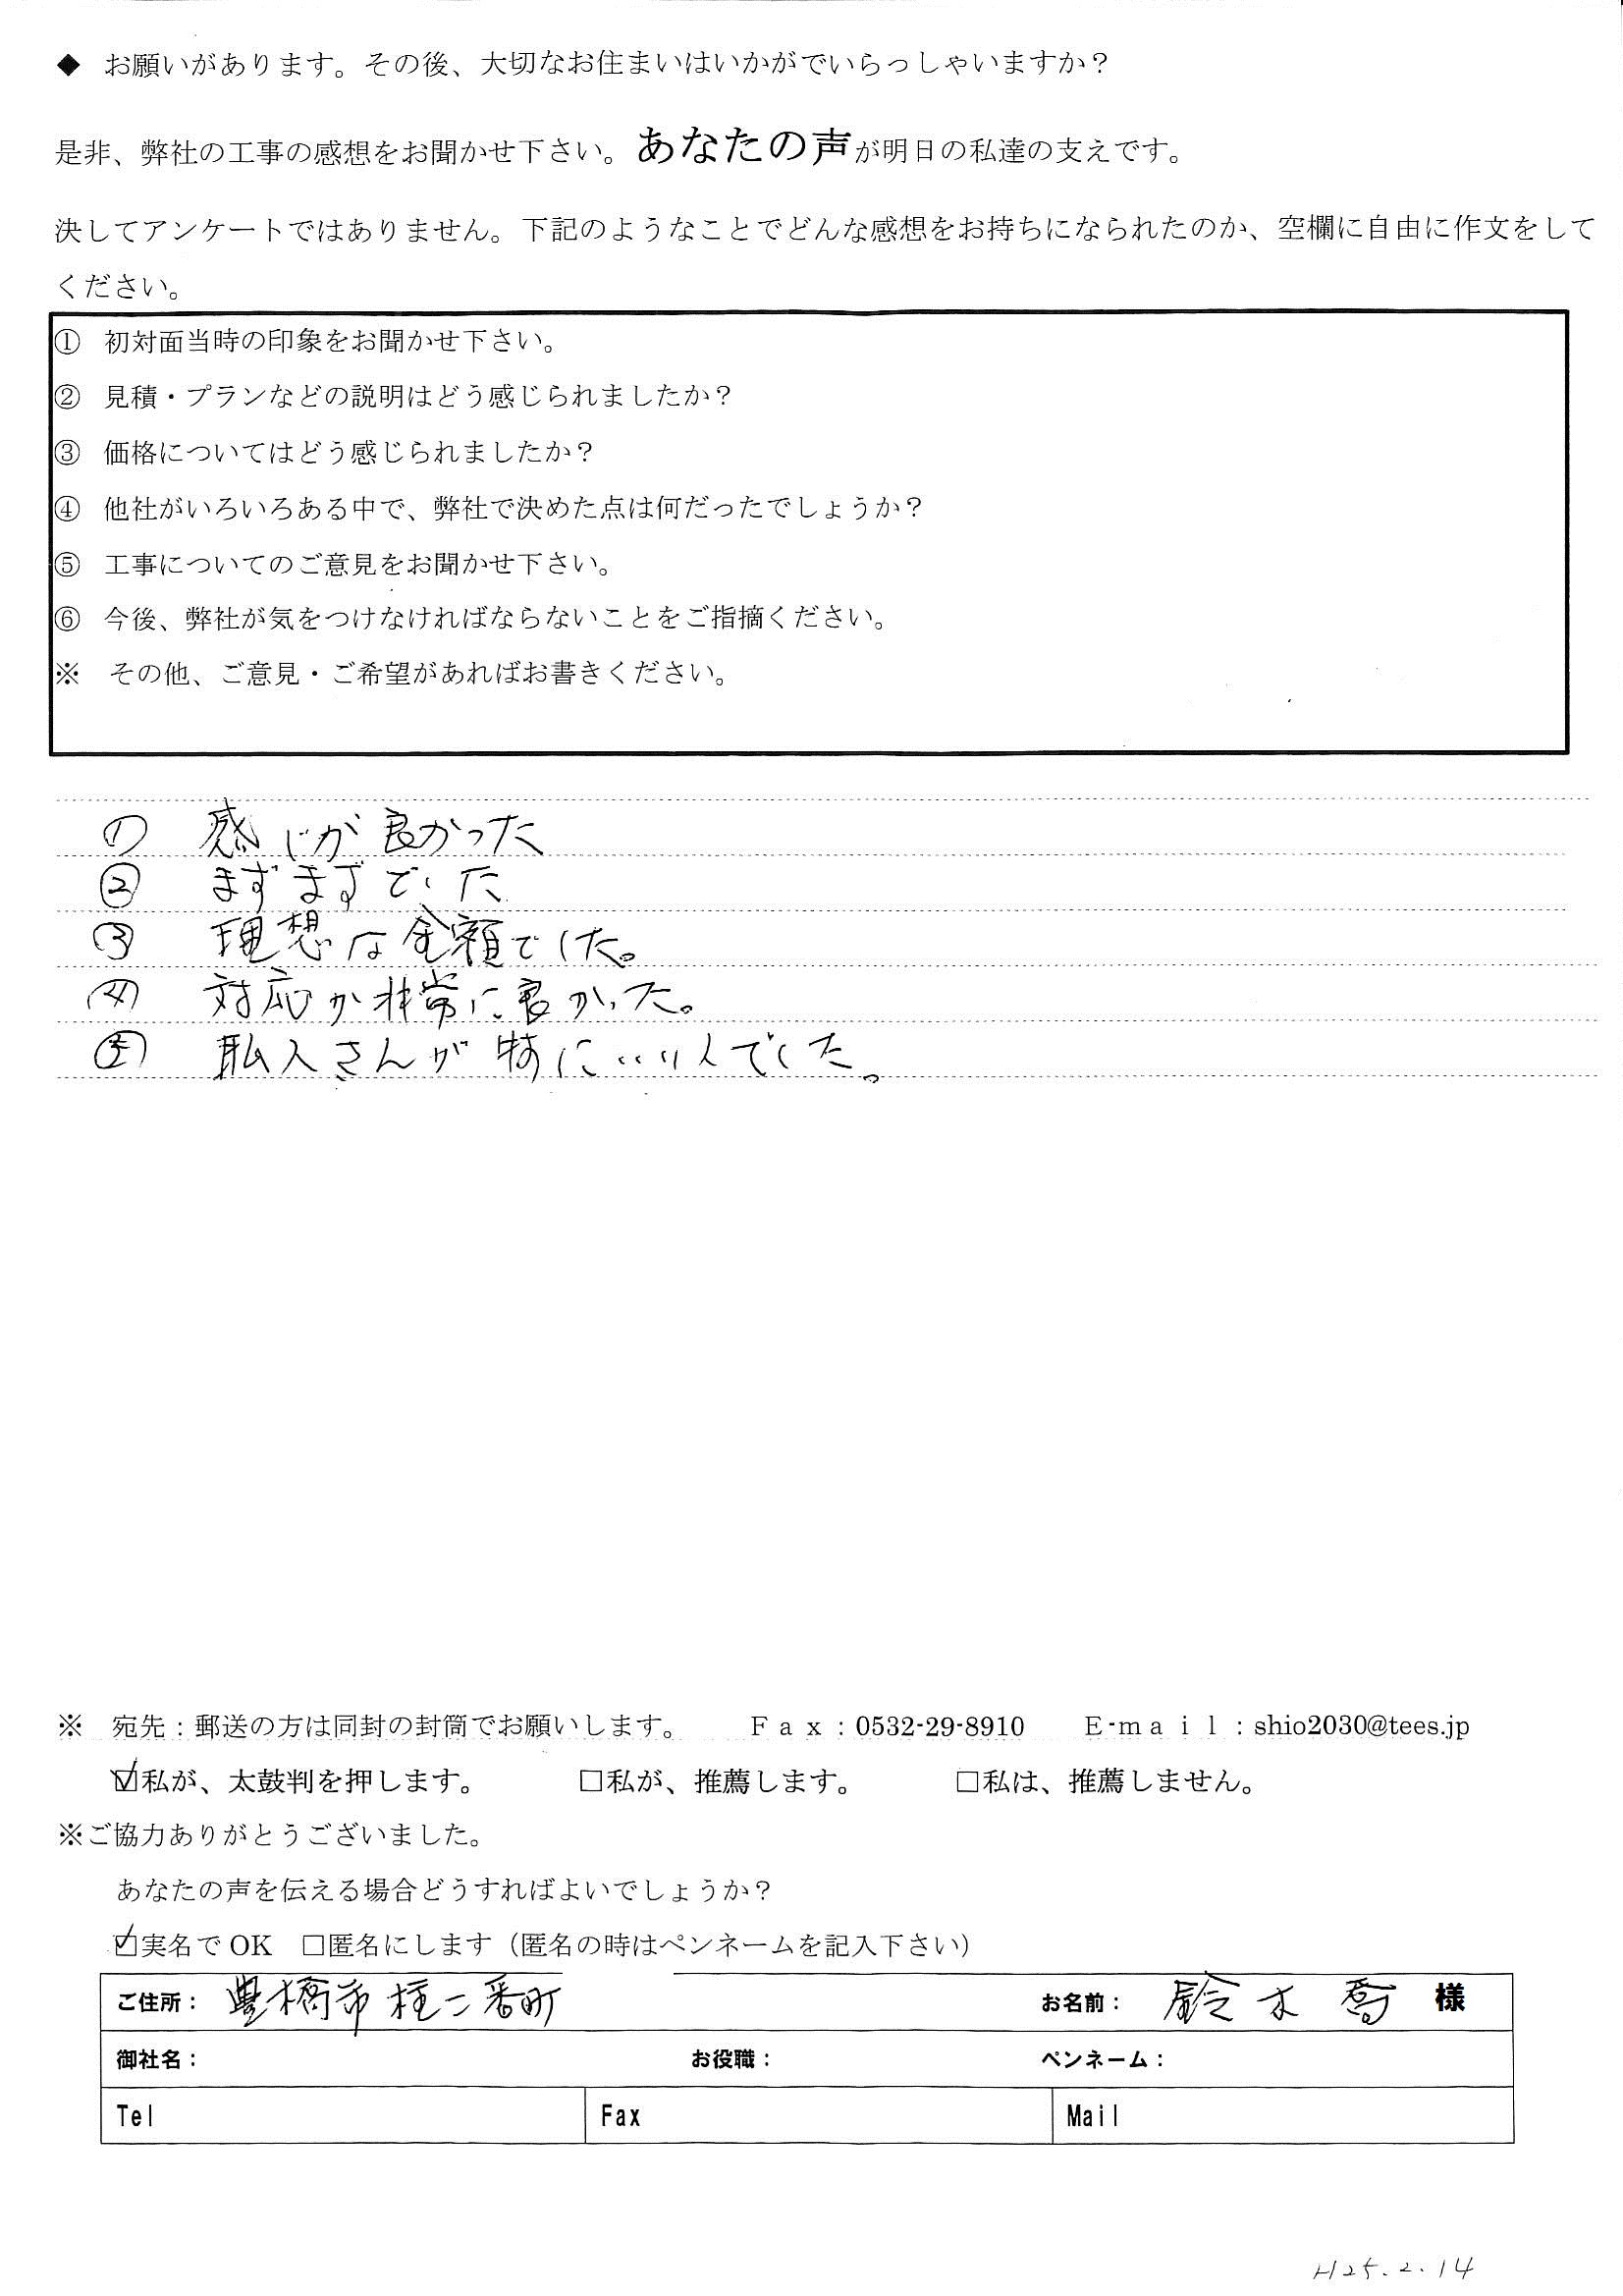 ◆ お願いがあります。その後、大切なお住まいはいかがでいらっしゃいますか？
是非、弊社の工事の感想をお聞かせ下さい。あなたの声が明日の私達の支えです。
決してアンケートではありません。下記のようなことでどんな感想をお持ちになられたのか、空欄に自由に作文をして
ください。
① 初対面当時の印象をお聞かせ下さい。
② 見積・プランなどの説明はどう感じられましたか？
③ 価格についてはどう感じられましたか？
④ 他社がいろいろある中で、弊社で決めた点は何だったでしょうか？
⑤ 工事についてのご意見をお聞かせ下さい。
⑥ 今後、弊社が気をつけなければならないことをご指摘ください。
※ その他、ご意見・ご希望があればお書きください。
① 感じが良かった
② まずまずでした
③ 理想な金額でした。
④ 対応が非常に良かった。
⑤ 職人さんが特にいい人でした。
※ 宛先：郵送の方は同封の封筒でお願いします。 Ｆａｘ：0532-29-8910 Ｅ-ｍａｉｌ：shio2030@tees.jp
☑私が、太鼓判を押します。 □私が、推薦します。 □私は、推薦しません。
※ご協力ありがとうございました。
あなたの声を伝える場合どうすればよいでしょうか？
☑実名でOK □匿名にします（匿名の時はペンネームを記入下さい）
ご住所： 豊橋市 二番町 お名前： 鈴木 喬 様
御社名： お役職： ペンネーム：
Tel Fax Mail
H25.2.14